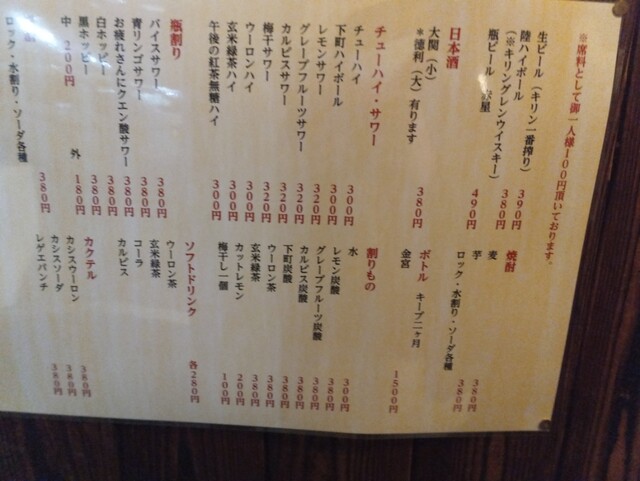 ※席料として御一人様100円頂いております。
生ビール（キリン一番搾り） 390円
陸ハイボール 380円
（※キリングレンウイスキー）
瓶ビール 490円
日本酒
大関（小） 380円
＊徳利（大）有ります
チューハイ・サワー
チューハイ 300円
下町ハイボール 300円
レモンサワー 320円
グレープフルーツサワー 320円
カルピスサワー 320円
梅干サワー 320円
ウーロンハイ 300円
玄米緑茶ハイ 300円
午後の紅茶無糖ハイ 300円
瓶割り
バイスサワー 380円
青リンゴサワー 380円
お疲れさんにクエン酸サワー 380円
白ホッピー 380円
黒ホッピー 380円
中 200円 外 180円
ロック・水割り・ソーダ各種 380円
焼酎
麦 380円
芋 380円
ロック・水割り・ソーダ各種
ボトル キープ二ヶ月
金宮 1500円
割りもの
水 300円
レモン炭酸 380円
グレープフルーツ炭酸 380円
カルピス炭酸 380円
下町炭酸 380円
ウーロン茶 380円
玄米緑茶 380円
カットレモン 200円
梅干し一個 100円
ソフトドリンク 各280円
ウーロン茶
玄米緑茶
コーラ
カルピス
カクテル
カシスウーロン 380円
カシスソーダ 380円
レゲエパンチ 380円